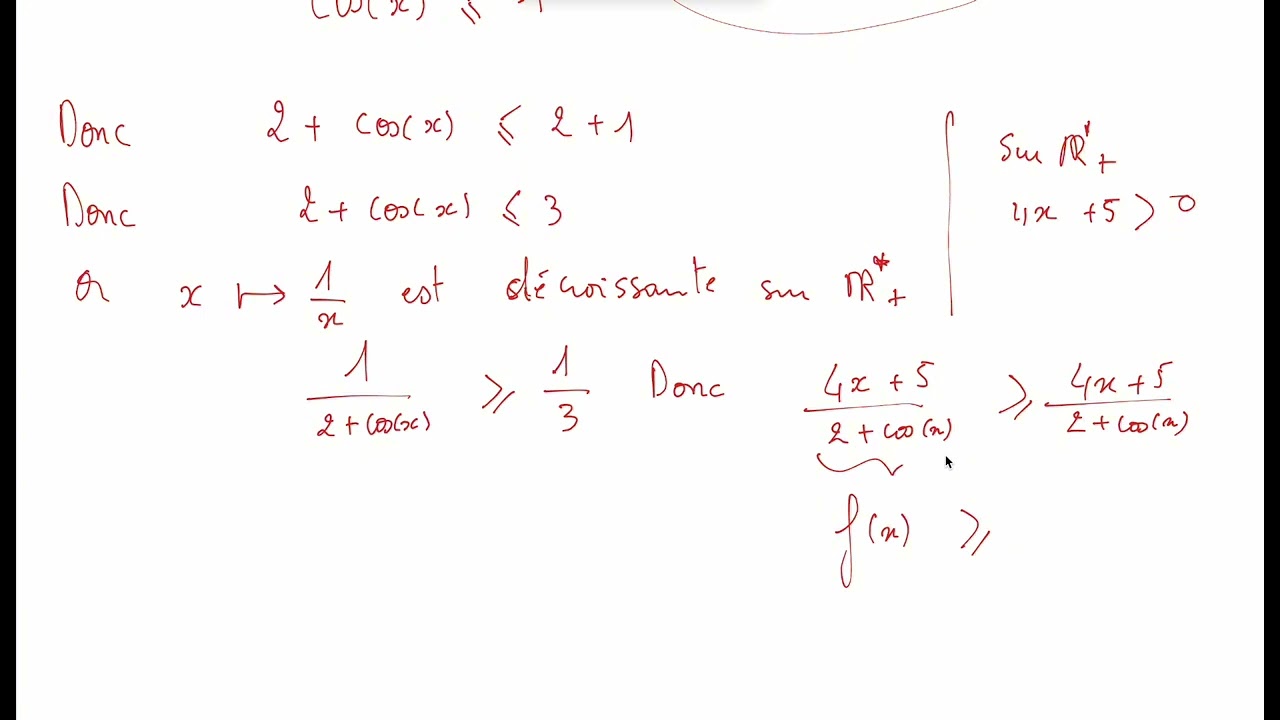 cos(x) ⩽ 1
Donc 2 + cos(x) ⩽ 2 + 1
Donc 2 + cos(x) ⩽ 3
Or x ↦ 1/x est décroissante sur ℝ*₊
sur ℝ*₊
4x + 5 > 0
1/(2 + cos(x)) ⩾ 1/3 Donc (4x + 5)/(2 + cos(x)) ⩾ (4x + 5)/(2 + cos(x))
f(x) ⩾